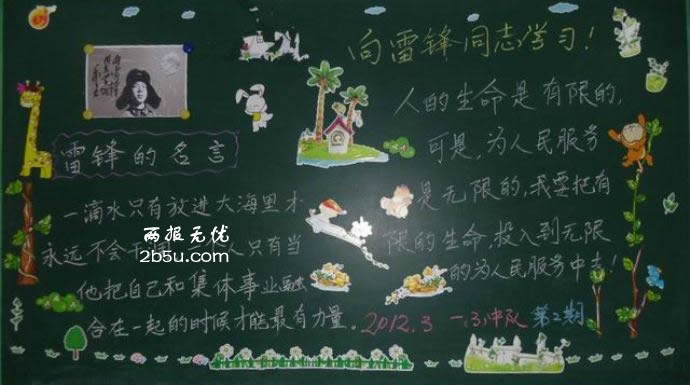 向雷锋同志学习!
人的生命是有限的,
可是,为人民服务
是无限的,我要把有
限的生命,投入到无限
的为人民服务中去!
雷锋的名言
一滴水只有放进大海里才
永远不会干 人只有当
他把自己和集体事业融
合在一起的时候才能最有力量.
2012.3 一.(3)中队 第2期
两报无优
2b5u.com